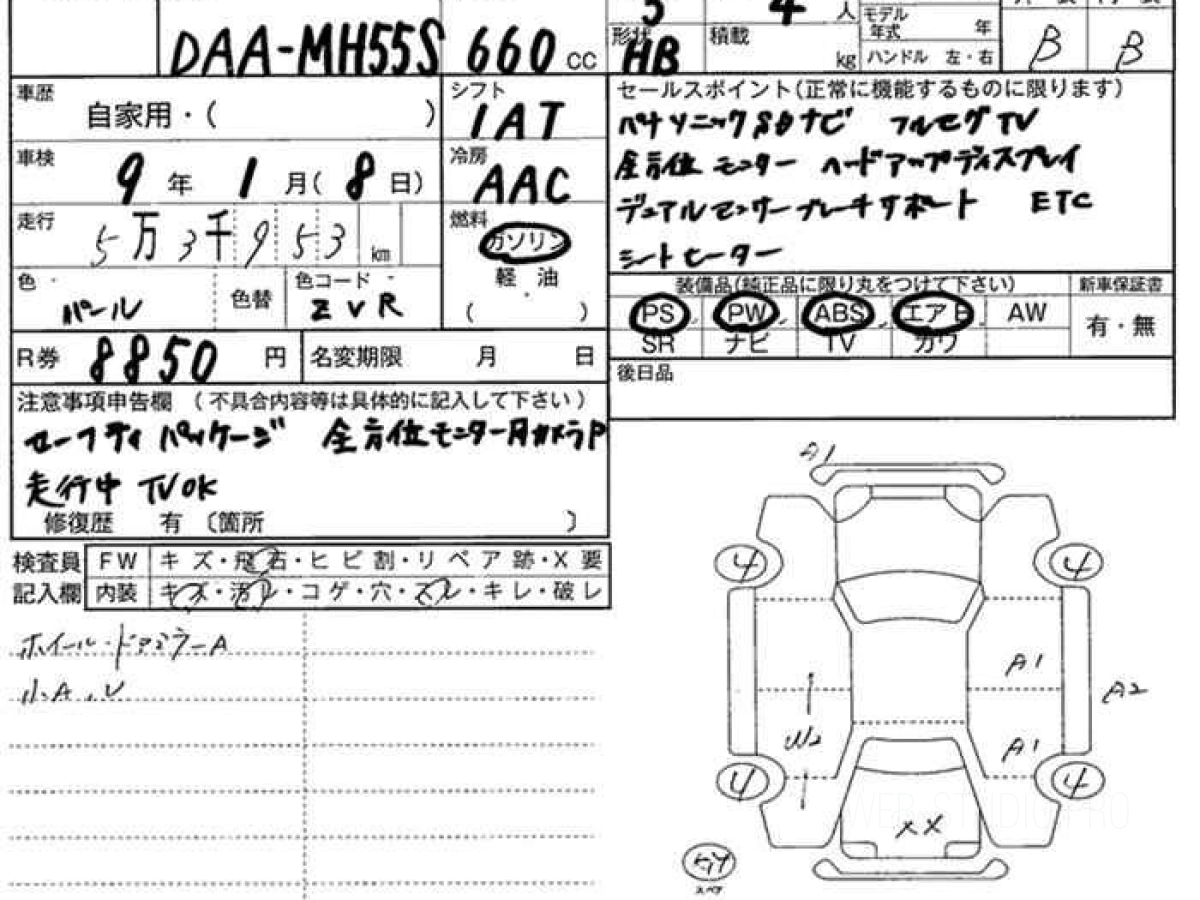 DAA-MH55S 660 cc
人
モデル
年式 年
形状 HB 積載 kg ハンドル 左・右
B B
車歴 自家用・( )
シフト IAT
セールスポイント(正常に機能するものに限ります)
パナソニックSDナビ フルセグTV
全方位モニター ヘッドアップディスプレイ
デュアルセンサーブレーキサポート ETC
シートヒーター
車検 9年 1月(8日)
冷房 AAC
走行 5万3千953km
燃料 ガソリン
軽油
( )
色 パール 色替 色コード ZVR
装備品(純正品に限り丸をつけて下さい) 新車保証書
PS PW ABS エアB AW 有・無
SR ナビ TV カワ
R券 8850円 名変期限 月 日
後日品
注意事項申告欄 (不具合内容等は具体的に記入して下さい)
セーフティパッケージ 全方位モニター用カメラP
走行中TVOK
修復歴 有〔箇所 〕
検査員 FW キズ・飛石・ヒビ割・リペア跡・X要
記入欄 内装 キズ・汚レ・コゲ・穴・スレ・キレ・破レ
ホイール・ドアミラーA
小A、U
A1
4 4
A1
A2
W2
A1
4 4
XX
スペア
WEB-STUDIO PRO